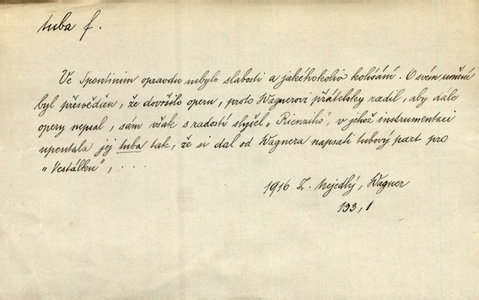 tuba f.
Ve Spontinim opravdu nebylo slabosti a jakéhokoliv kolísání. O svém umění
byl přesvědčen, že dovršilo operu, proto Wagnerovi přátelsky radil, aby dále
opery nepsal, sám však s radostí slyšel „Rienziho", v jehož instrumentaci
upoutala jej tuba tak, že si dal od Wagnera napsati tubový part pro
„Vestálku", . . .
1916 Z. Nejedlý, Wagner
193, 1